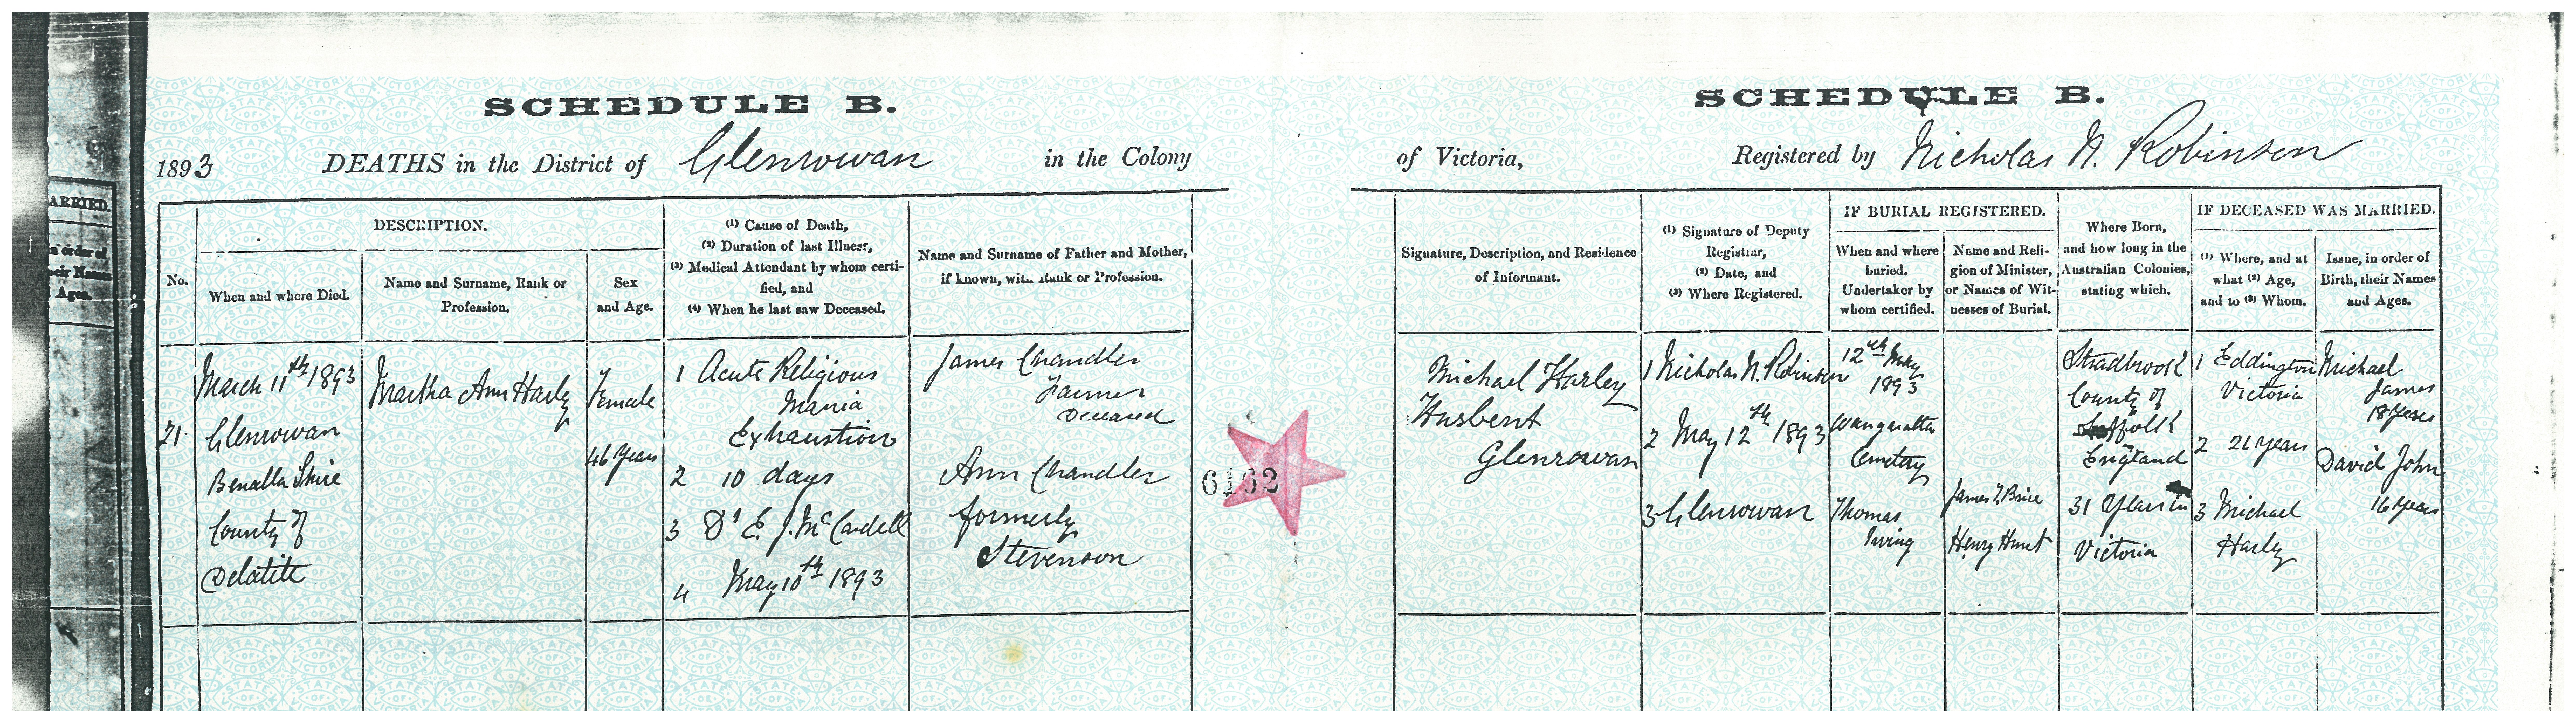 SCHEDULE B.
SCHEDULE B.
1893 DEATHS in the District of Glenrowan in the Colony
of Victoria, Registered by Nicholas N. Robinson
ARRIED.
No.
DESCRIPTION.
When and where Died.
Name and Surname, Rank or
Profession.
Sex
and Age.
(1) Cause of Death,
(2) Duration of last Illness,
(3) Medical Attendant by whom certi-
fied, and
(4) When he last saw Deceased.
Name and Surname of Father and Mother,
if known, with Rank or Profession.
Signature, Description, and Residence
of Informant.
(1) Signature of Deputy
Registrar,
(2) Date, and
(3) Where Registered.
IF BURIAL REGISTERED.
When and where
buried.
Undertaker by
whom certified.
Name and Reli-
gion of Minister,
or Names of Wit-
nesses of Burial.
Where Born,
and how long in the
Australian Colonies,
stating which.
IF DECEASED WAS MARRIED.
(1) Where, and at
what (2) Age,
and to (3) Whom.
Issue, in order of
Birth, their Names
and Ages.
21.
March 11th 1893
Glenrowan
Benalla Shire
County of
Delatite
Martha Ann Harley
Female
46 Years
1 Acute Religious
Mania
Exhaustion
2 10 days
3 Dr E. J. McCardell
4 May 10th 1893
James Chandler
Farmer
Deceased
Ann Chandler
formerly
Stevenson
6162
Michael Harley
Husbent
Glenrowan
1 Nicholas N. Robinson
2 May 12th 1893
3 Glenrowan
12th May
1893
Wangaratta
Cemetery
Thomas
Irving
James T. Brice
Henry Hunt
Stradbrook
County of
Suffolk
England
31 Years in
Victoria
1 Eddington
Victoria
2 26 Years
3 Michael
Harley
Michael
James
18 Years
David John
16 Years